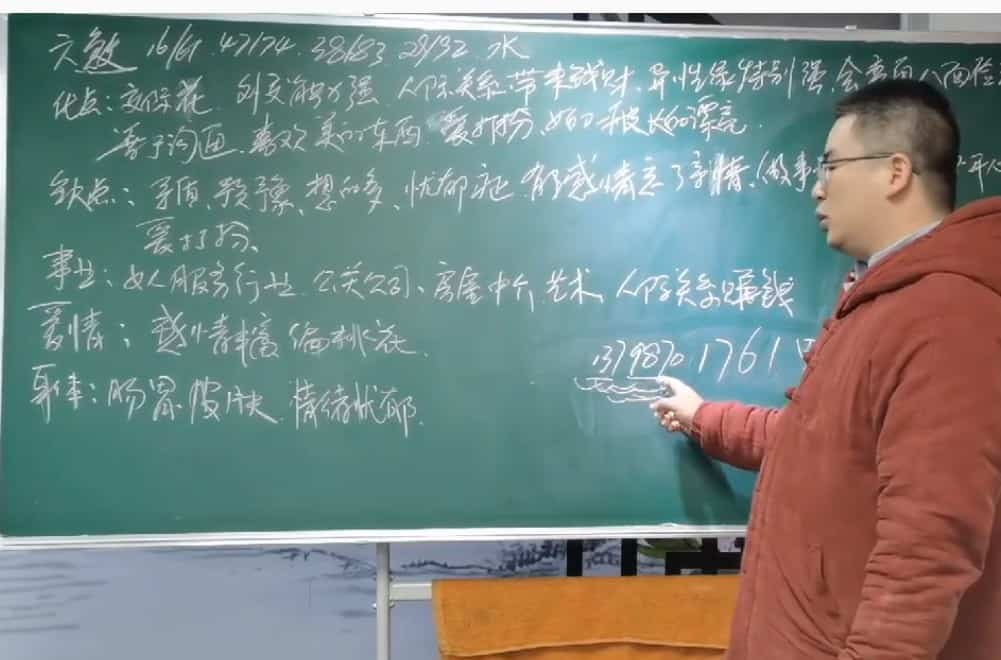 六煞 16/61. 47/74. 38/83 29/92. 水
优点：交际花 外交能力强 人际关系带来钱财. 异性缘特别强, 会
善于沟通、喜欢美的东西 爱打扮、皮长的漂亮.
缺点：矛盾、犹豫、想的多、忧郁症 有感情忘了亲情、做事
爱打扮、
事业：女人服务行业 公关公司、房屋中介 艺术、人际关系赚钱
爱情：感情丰富 偏桃花.
1379870.1761
身体：肠胃 皮肤 情绪忧郁.